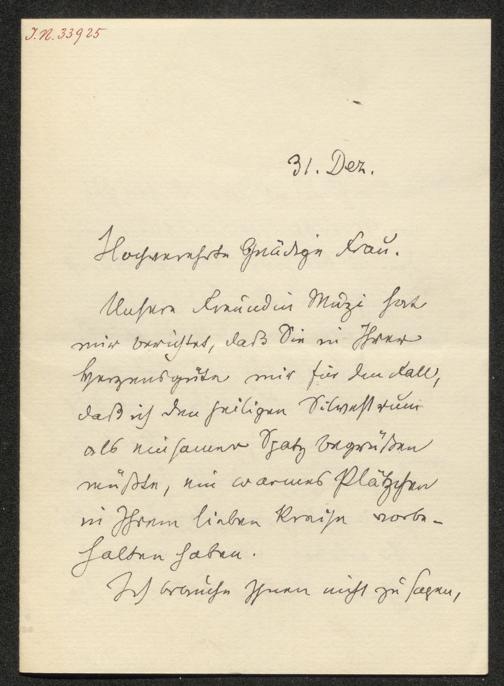 J.N. 33925
31. Dez.
Hochverehrte Gnädige Frau.
Unsere Freundin Mizi hat
mir berichtet, daß Sie in Ihrer
Herzensgüte mir für den Fall,
daß ich den heiligen Silvestrum
als einsamer Spatz begrüßen
müßte, ein warmes Plätzchen
in Ihrem lieben Kreise vorbe-
halten haben.
Ich brauche Ihnen nicht zu sagen,